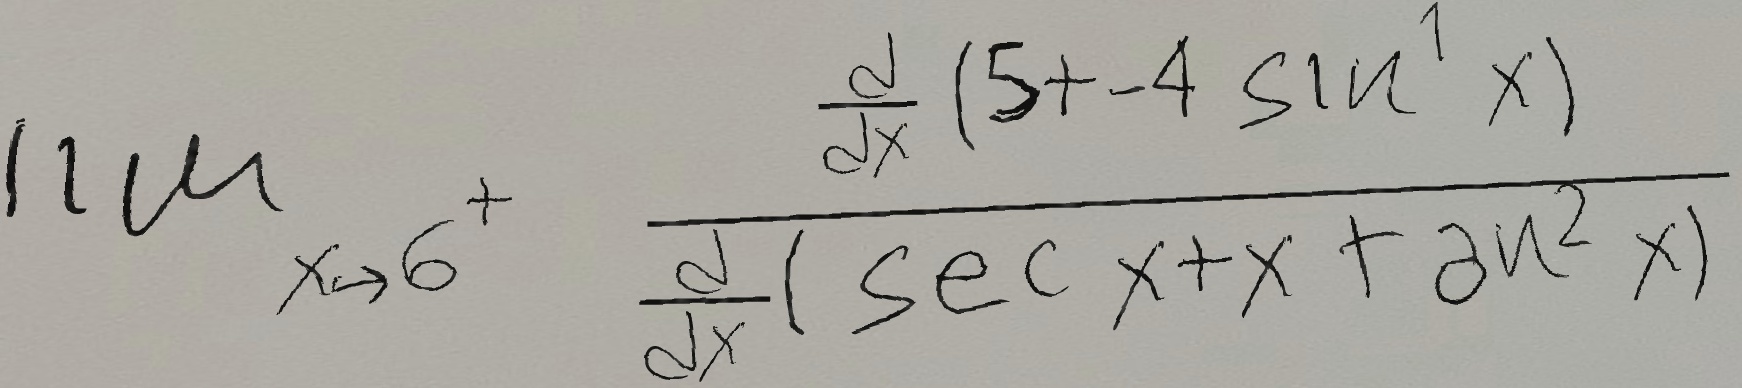 \lim_{x \to 6^+} \frac{\frac{d}{dx}(5+-4 \sin^1 x)}{\frac{d}{dx}(\sec x+x \tan^2 x)}